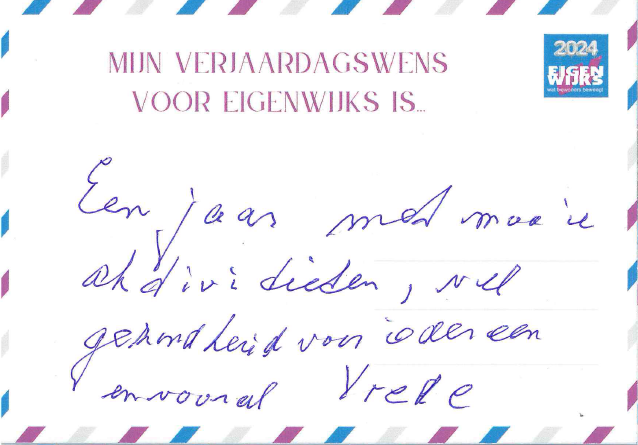 MIJN VERJAARDAGSWENS
VOOR EIGENWIJKS IS...
2024
EIGEN
WIJKS
wat bewoners beweegt
Een jaar met mooie
aktiviteiten, veel
gezondheid voor iedereen
en vooral Vrede